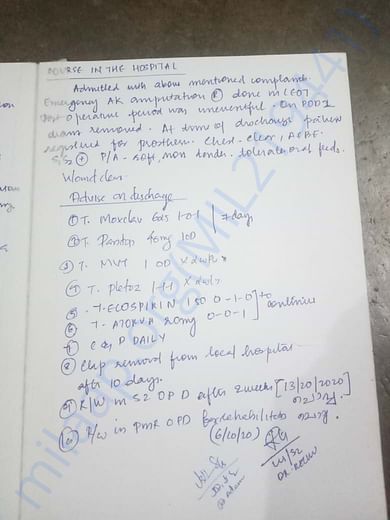 COURSE IN THE HOSPITAL
Admitted with above mentioned complaints.
Emergency AK amputation (R) done in LEOT
Post operative period was uneventful. On POD1
drain removed. At time of discharge patient
registered for prosthesis. Chest - clear, AEBE.
S1S2 (+) P/A - soft, non tender. tolerate oral feeds.
Wound clean.
Advise on discharge
① T. Moxclav 625 1-0-1 / 7 days
② T. Pantop 40mg 100
③ T. MVT 1 OD x 2 wks
④ T. Pletoz 1-1-1 x 2wk
5. T-ECOSPIRIN 150 0-1-0 } to
⑥ T-ATORVA 20mg 0-0-1 } continue
⑦ C & D DAILY
⑧ Clip removal from local hospital
after 10 days.
⑨ R/W in S2 OPD after 2 weeks [13/20/2020]
⑩ R/w in PMR OPD for rehabilitation
(6/10/20)
milaap.org(MIL2194411)